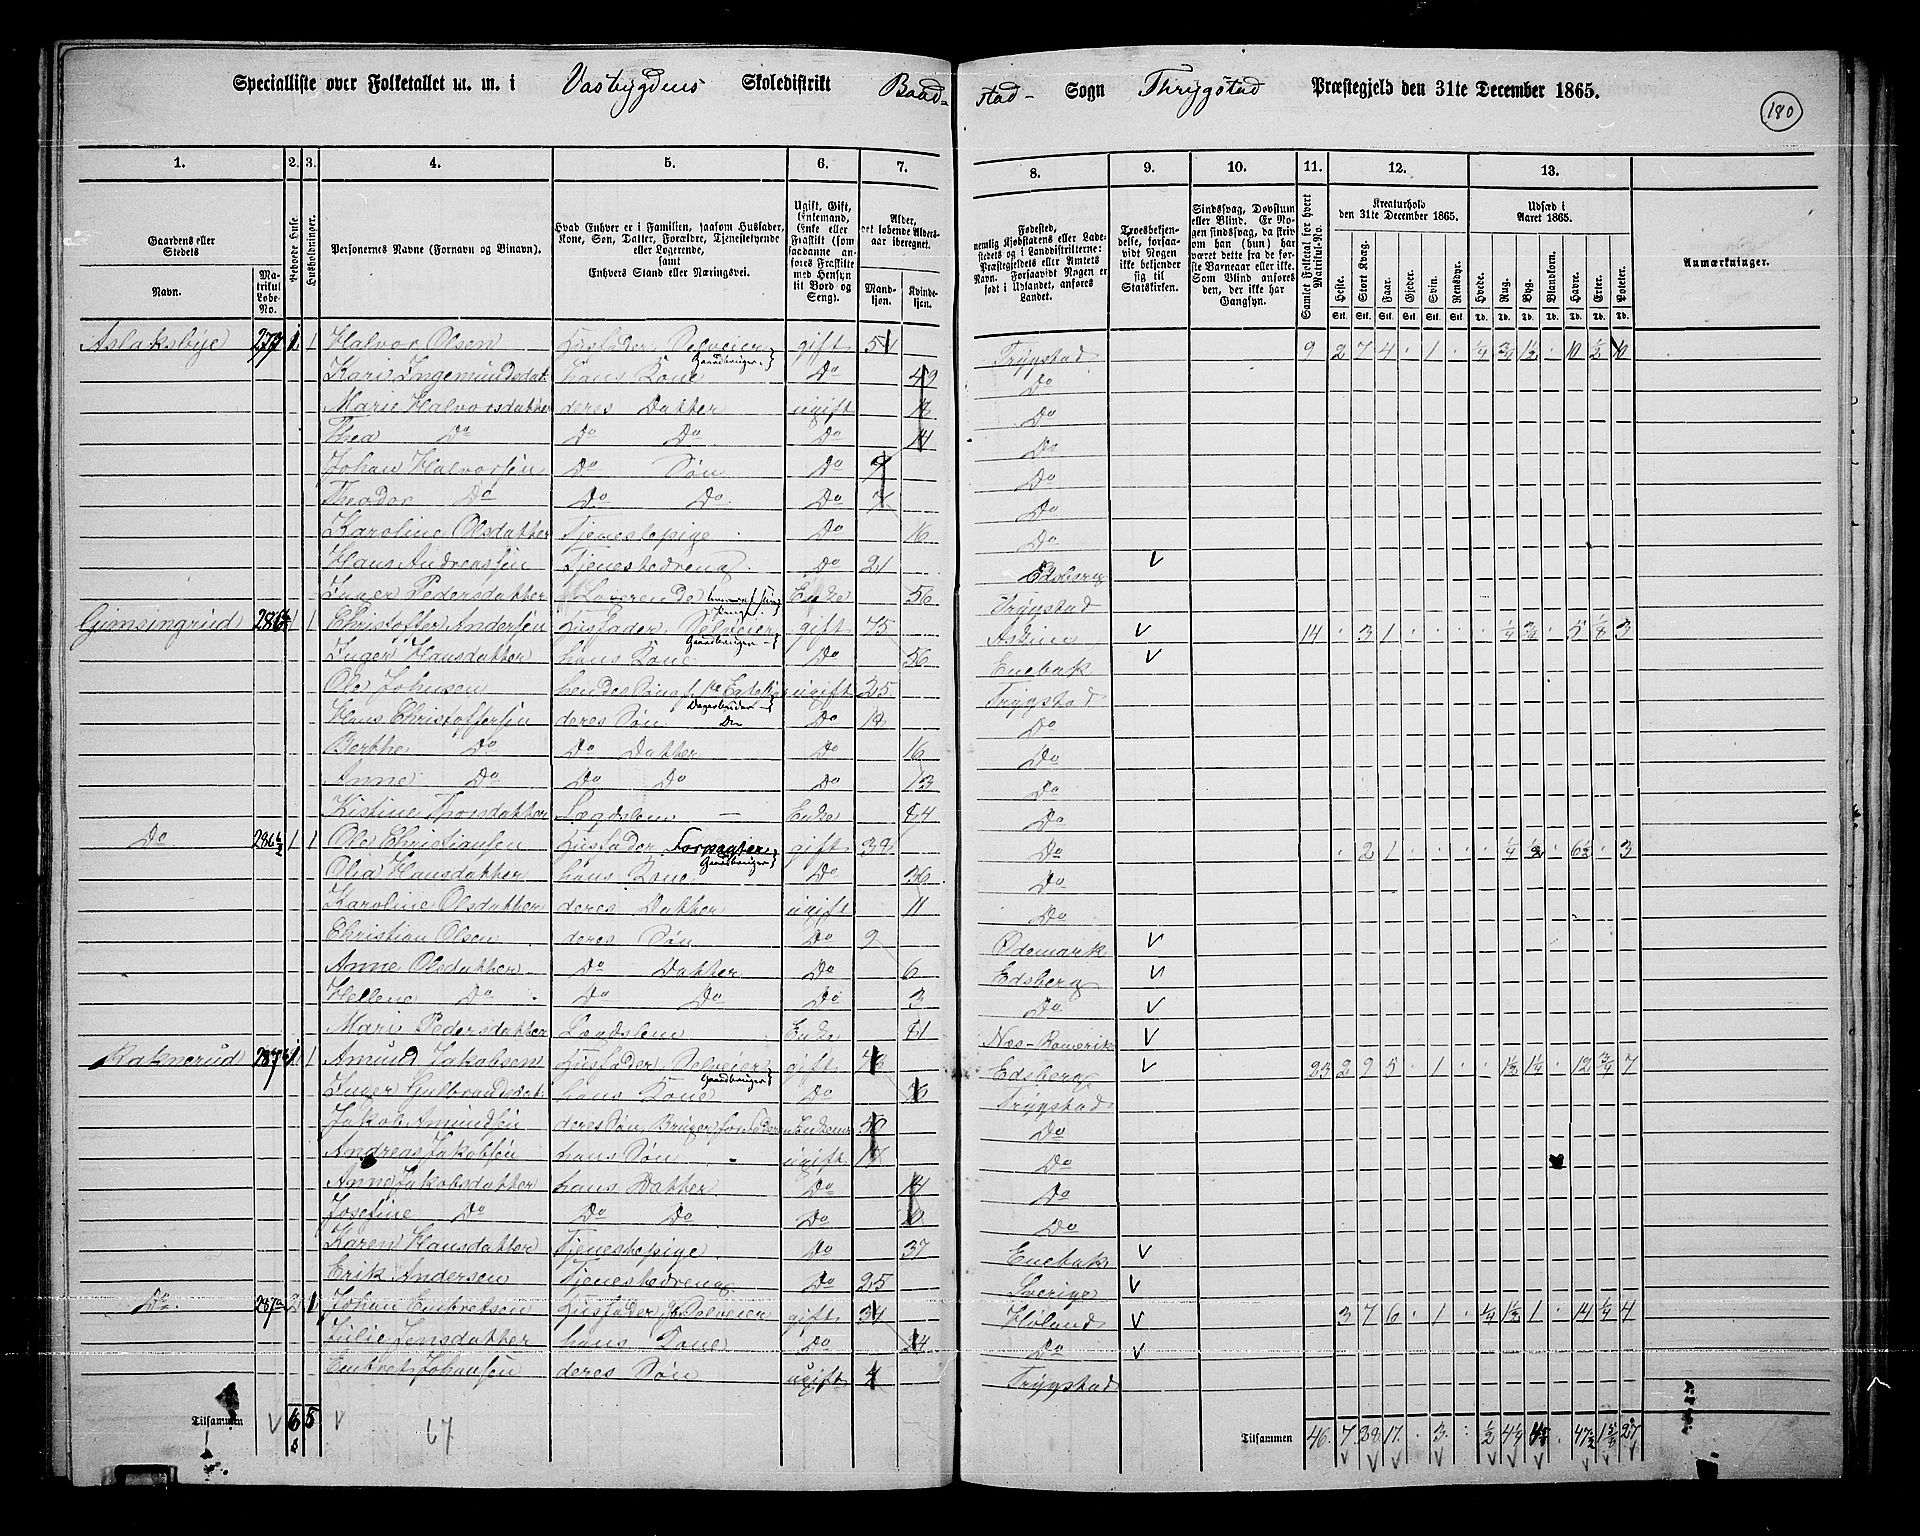 Specialliste over Folketallet m. m. i Vasbygdens Skoledistrikt Baadstad Sogn Thrygstad Præstegjeld den 31te December 1865.
180
1. 2. 3. 4. 5. 6. 7. 8. 9. 10. 11. 12. 13.
Gaardens eller Stedets
Navn.
Matrikul Løbe-No.
Beboede Huse
Husholdninger.
Personernes Navne (Fornavn og Binavn).
Hvad Enhver er i Familien, saasom Husfader, Kone, Søn, Datter, Forældre, Tjenestetyende eller Logerende, samt Enhvers Stand eller Næringsvei.
Ugift, Gift, Enkemand, Enke eller Fraskilt
Alder, det løbende Alders-aar iberegnet.
Mandkjøn. Kvindekjøn.
Fødested, nemlig Kjøbstadens eller Ladestedets og i Landdistrikterne: Præstegjeldets eller Amtets Navn. Forsaavidt Nogen er født i Udlandet, anføres Landet.
Troesbekjendelse, forsaavidt Nogen ikke bekjender sig til Statskirken.
Sindssvag, Døvstum eller Blind.
Samlet Folketal for hvert Matrikul-No.
Kreaturhold den 31te December 1865.
Udsæd i Aaret 1865.
Anmærkninger.
Heste. Stort Kvæg. Faar. Gjeder. Svin. Rensdyr. Hvede. Rug. Byg. Blandkorn. Havre. Erter. Poteter.
Aslaksbye 1 1 Halvor Olsen Husfader, Selveier Gaardbruger gift 51 Trygstad 9 2 7 4 1 1/4 3/4 1 1/2 10 1/2 10
Kari Ingemundsdat. hans Kone Do 49 Do
Marie Halvorsdatter deres Datter ugift Do
Thea Do Do Do Do 14 Do
Johan Halvorsen Do Søn Do Do
Theodor Do Do Do Do Do
Karoline Olsdatter Tjenestepige Do 16 Do
Hans Andreassen Tjenestedreng Do 21 Edsberg
Inger Pedersdatter Logerende Enke 56 Trygstad
Gimsingrud 1 1 Christoffer Andersen Husfader, Selveier Gaardbruger gift 75 Askim 14 3 1 1/4 3/4 5 1/8 3
Inger Hansdatter hans Kone Do 56 Enebak
Ole Johnsen ugift 25 Trygstad
Hans Christoffersen deres Søn Do Do 18 Do
Berthe Do Do Datter Do 16 Do
Anne Do Do Do Do 13 Do
Kistine Thorsdatter Lægdslem Enke 84 Do
Do 1 1 Ole Christiansen Husfader, Forpagter Gaardbruger gift 38 Do 2 1 1/4 1/2 6 1/2 3
Olia Hansdatter hans Kone Do 36 Do
Karoline Olsdatter deres Datter ugift 11 Do
Christian Olsen deres Søn Do 9 Ødemark
Anne Olsdatter Do Datter Do 6 Edsberg
Hellene Do Do Do Do 3 Do
Mari Pedersdatter Lægdslem Enke 81 Næs-Romerik
Raknerud 1 1 Amund Jakobsen Husfader Selveier Gaardbruger gift Edsberg 23 2 9 5 1 1 1/2 1 1/4 12 3/4 7
Inger Gulbrandsdat. hans Kone Do Trygstad
Jakob Amundsen deres Søn, Bruger for Fader Enkem. 50 Do
Andreas Jakobsen hans Søn ugift 17 Do
Anne Jakobsdatter hans Datter Do 14 Do
Josefine Do Do Do Do Do
Karen Hansdatter Tjenestepige Do 37 Enebak
Erik Andersen Tjenestedreng Do 25 Sverige
Do 2 1 Johan Embretsen Husfader, Selveier gift 34 Høland 3 7 6 1 1/4 1 1/2 1 14 1/4 4
Julie Jensdatter hans Kone Do 24 Do
Embret Johansen deres Søn ugift 4 Trygstad
Tilsammen 6 5 67
Tilsammen 46 7 28 17 3 1/2 4 1/4 47 1/2 27